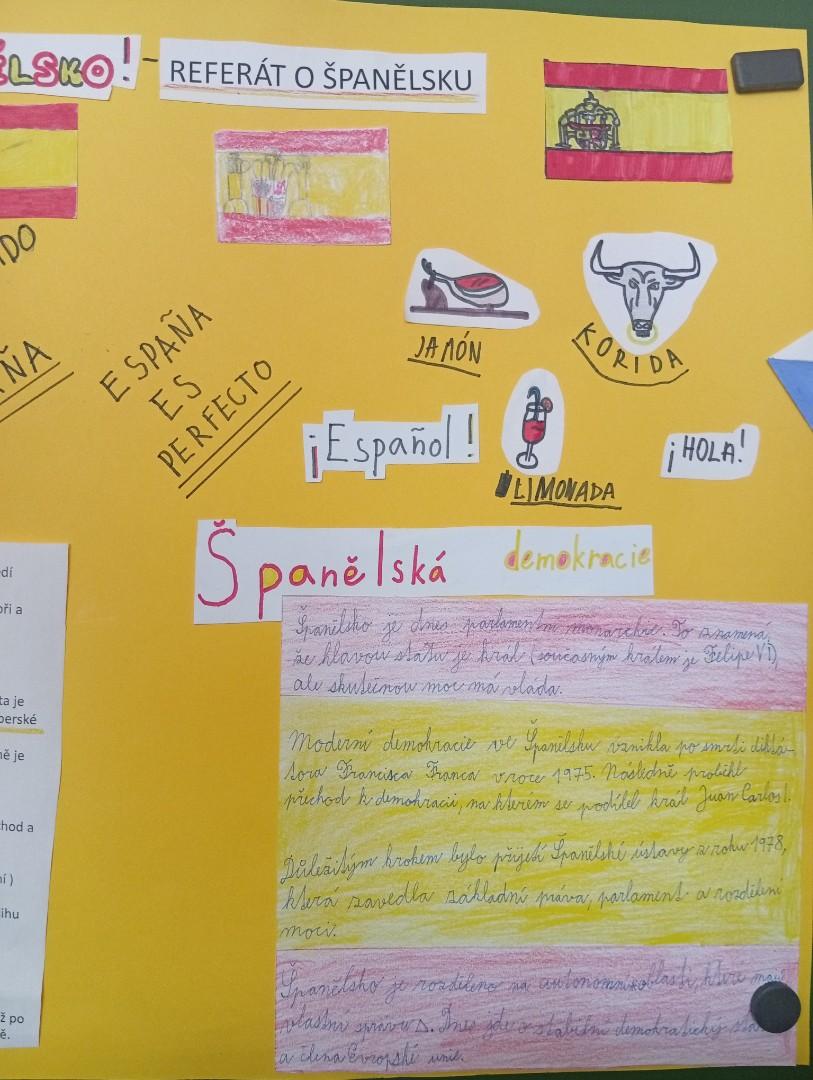 ĚLSKO! - REFERÁT O ŠPANĚLSKU
DO
ÑA
ESPAÑA
ES
PERFECTO
JAMÓN
KORIDA
¡Español!
LIMONADA
¡HOLA!
Španělská demokracie
Španělsko je dnes parlamentní monarchie. To znamená,
že hlavou státu je král (současným králem je Felipe VI),
ale skutečnou moc má vláda.
Moderní demokracie ve Španělsku vznikla po smrti diktá-
tora Francisca Franca v roce 1975. Následně proběhl
přechod k demokracii, na kterém se podílel král Juan Carlos I.
Důležitým krokem bylo přijetí Španělské ústavy z roku 1978,
která zavedla základní práva, parlament a rozdělení
moci.
Španělsko je rozděleno na autonomní oblasti, které mají
vlastní správu. Dnes jde o stabilní demokratický
a člena Evropské unie.
edí
oři a
ta je
berské
ně je
hod a
ní)
ihu
ž po
ě.